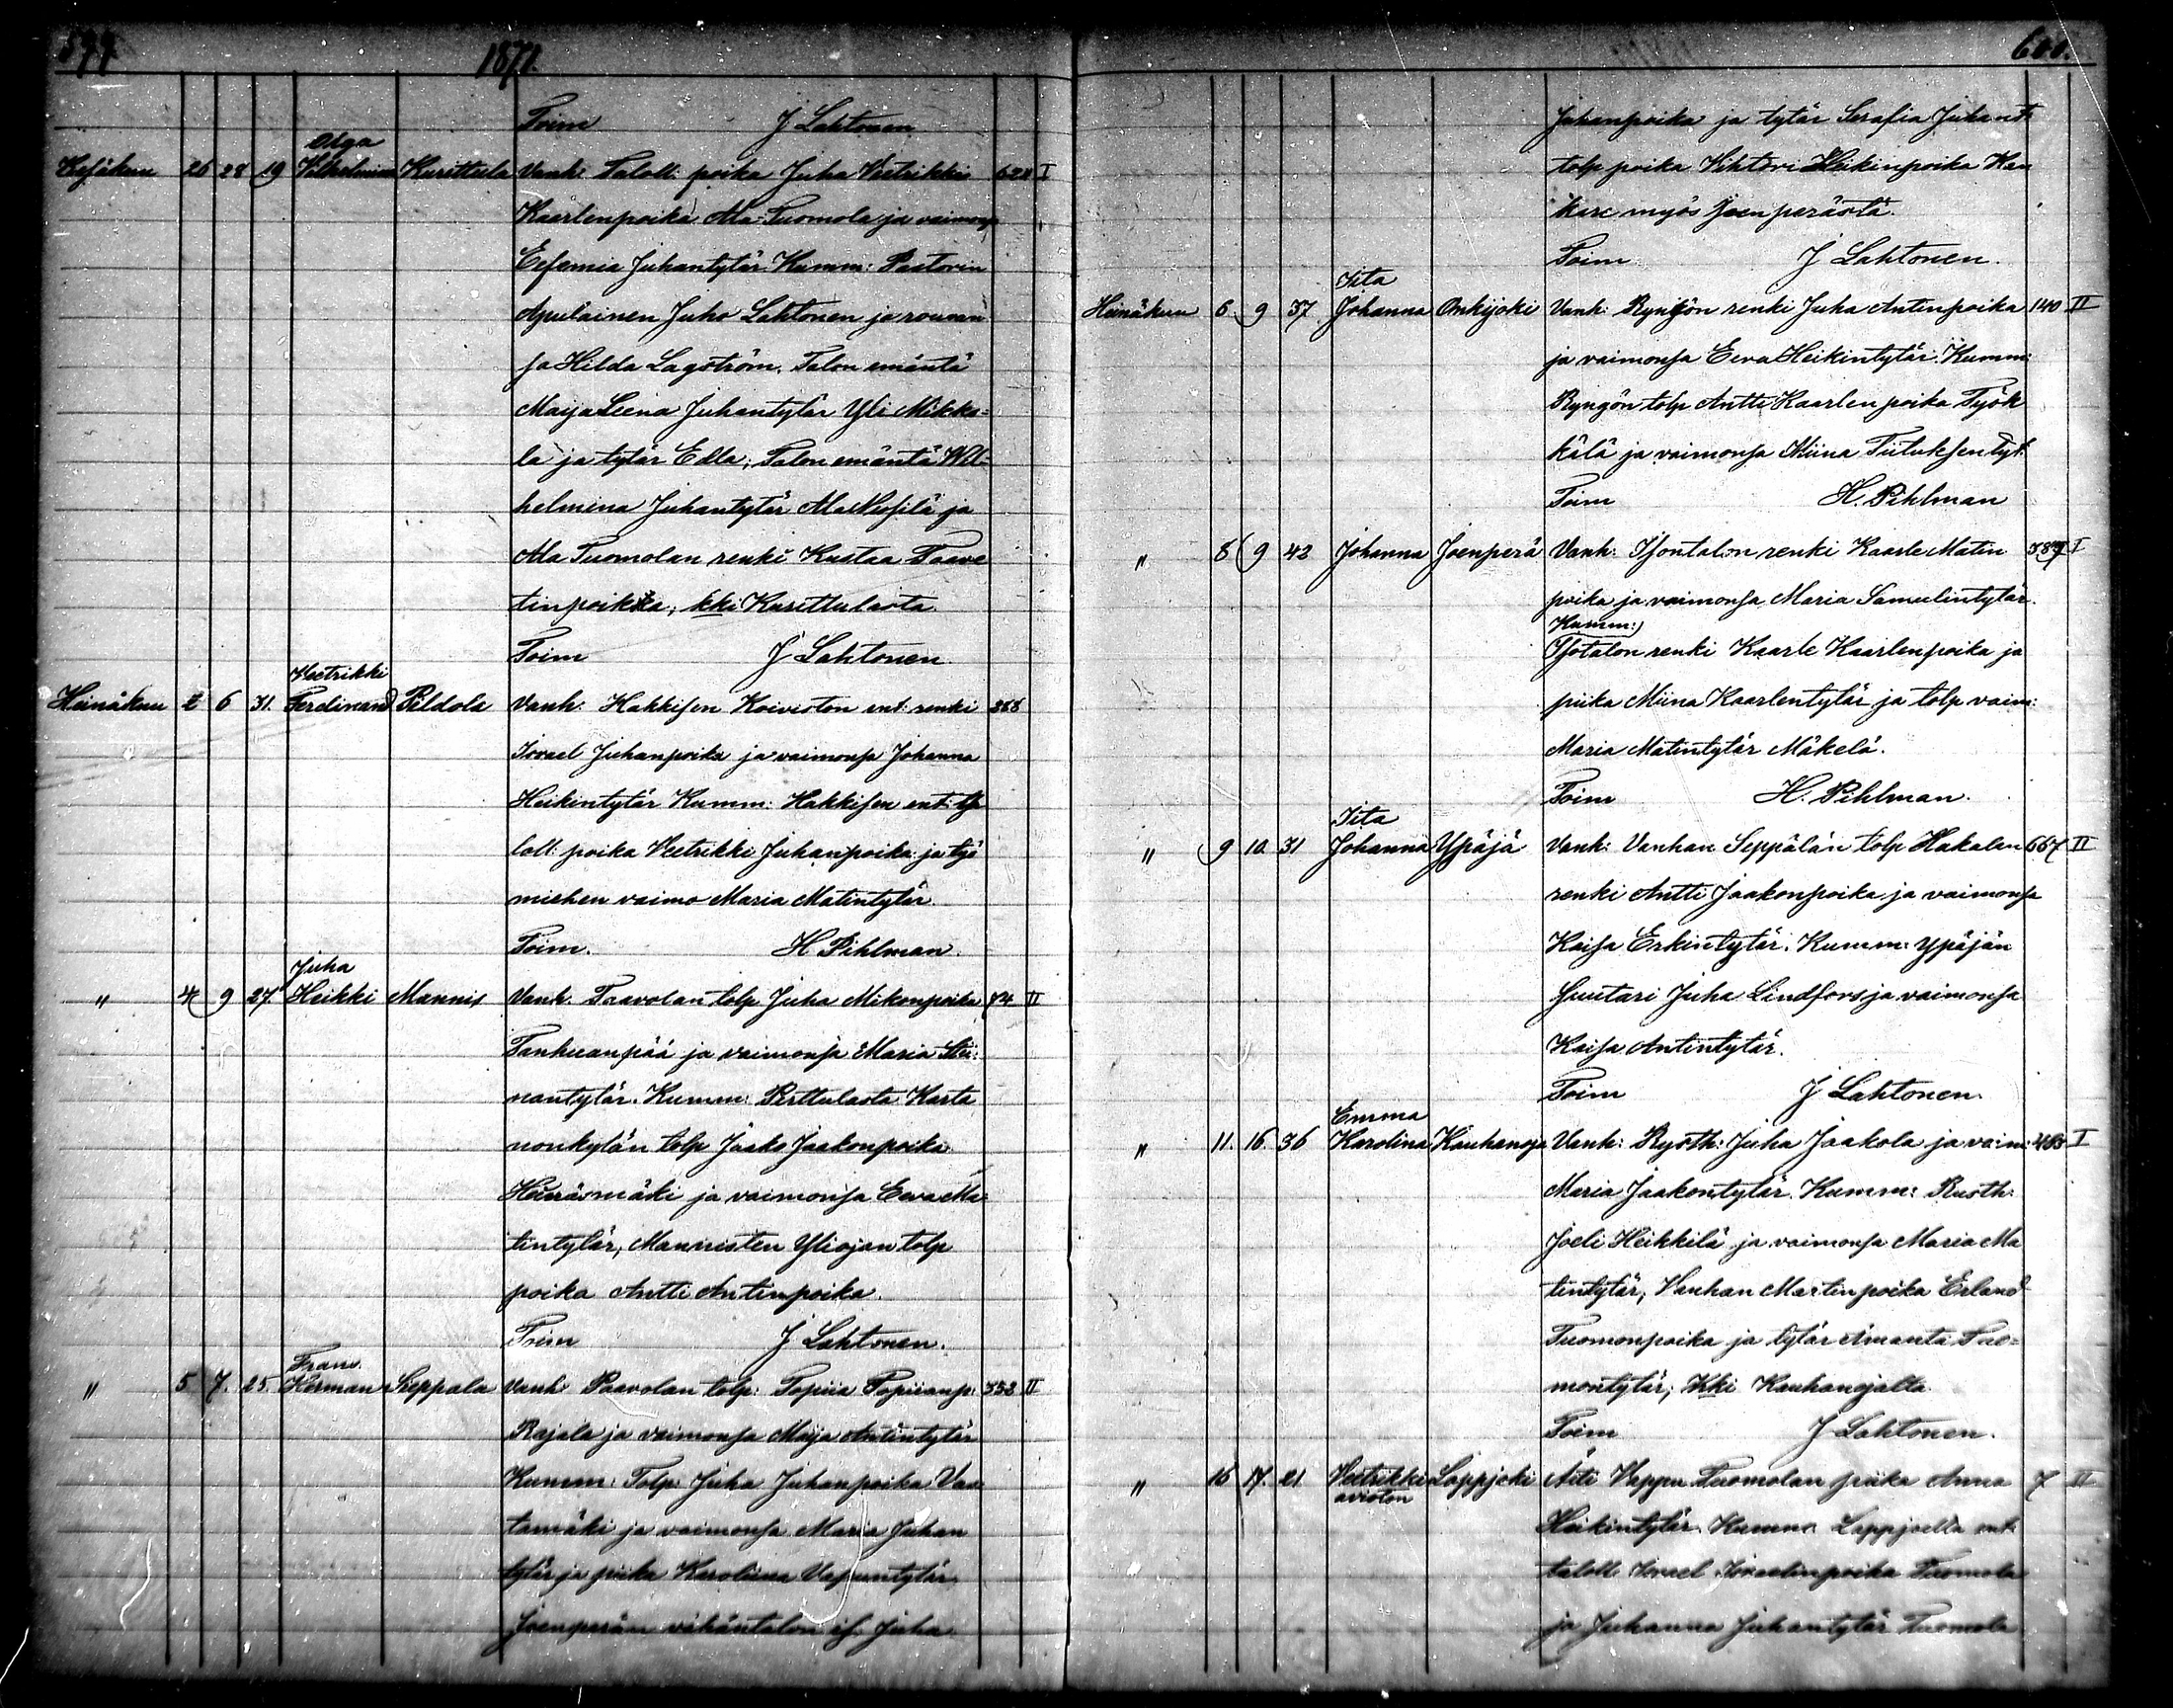 599
1871.
Toim J Lahtonen
Olga
Kesäkuu 26 28 19 Vilhelmina Kurittula Vanh: Taloll: poika Juha Veetrikki 628 I
Kaarlenpoika Ala-Tuomola ja vaimonsa
Eefemia Juhantytär. Kumm: Pastorin
Apulainen Juho Lahtonen ja rouvan
sa Hilda Lagström. Talon emäntä
Maija Leena Juhantytär Yli Mikko=
la ja tytär Edla; Talon emäntä Wil=
helmina Juhantytär Ala ja
Ala Tuomolan renki Kustaa Taave
tinpoikka, kki Kurittulasta.
Toim J Lahtonen.
Veetrikki
Heinäkuu 2 6 31. Ferdinand Pildola Vanh: Hakkisen Koiviston ent: renki 388
Israel Juhanpoika ja vaimonsa Johanna
Heikintytär Kumm: Hakkisen ent:
loll: poika Veetrikki Juhanpoika ja työ
miehen vaimo Maria Matintytär.
Toim. H Pihlman.
Juha
" 4 9 27 Heikki Mannis Vanh: Taavolan tolp Juha Mikonpoika 74 II
Tanhuanpää ja vaimonsa Maria
nantytär. Kumm: Perttulasta Karta
nonkylän tolp Jaako Jaakonpoika
Heinäsmäki ja vaimonsa Eeva Ma
tintytär, Mannisten Yliojan tolp
poika Antti Antinpoika.
Toim J Lahtonen.
Frans
" 5 7. 25 Herman Seppala Vanh: Paavolan tolp: Topiia Topiianp: 352 II
Rajala ja vaimonsa Maija Antintytär
Kumm: Tolp: Juha Juhanpoika Vaa
tamäki ja vaimonsa Maria Juhan
tytär ja piika Karoliina Vapuntytär
Joenperän vähäntalon is: Juha
600.
Juhanpoika ja tytär Serafia Juhant:
tolp poika Vihtori Heikinpoika Kan
kare myös Joen perästä.
Toim J Lahtonen.
Iita
Heinäkuu 6. 9 37 Johanna Onkijoki Vanh: Ryngön renki Juha Antinpoika 140 II
ja vaimonsa Eeva Heikintytär. Kumm:
Ryngön tolp Antti Kaarlen poika Työk
kälä ja vaimonsa Miina Tiituksentyt:
Toim H. Pihlman
" 8 9 42 Johanna Joenperä Vanh: Isontalon renki Kaarle Matin 387 I
poika ja vaimonsa Maria Samuelintytär.
Kumm:
Isotalon renki Kaarle Kaarlenpoika ja
piika Miina Kaarlentytär ja tolp vaim:
Maria Matintytär Mäkelä.
Toim H. Pihlman.
Iita
" 9 10 31 Johanna Ypäjä Vanh: Vanhan Seppälän tolp Hakalan 667 II
renki Antti Jaakonpoika ja vaimonsa
Kaisa Erkintytär. Kumm: Ypäjän
Suutari Juha Lindfors ja vaimonsa
Kaisa Antintytär.
Toim J Lahtonen.
Emma
" 11. 16. 36 Karolina Kauhanoja Vanh: Rusth: Juha Jaakola ja vaim: 485 I
Maria Jaakontytär. Kumm: Rusth:
Joeli Heikkilä ja vaimonsa Maria Ma
tintytär, Vanhan Martin poika Erland
Tuomonpoika ja tytär Amanta Tuo=
montytär, Kki Kauhanojalta.
Toim J Lahtonen.
" 16 17. 21 Veetrikki Lappjoki Äiti Uappu Tuomolan piika Anna 7 II
avioton
Heikintytär. Kumm: Lappjoelta ent:
taloll: Israel Israelinpoika Tuomola
ja Juhanna Juhantytär Tuomola